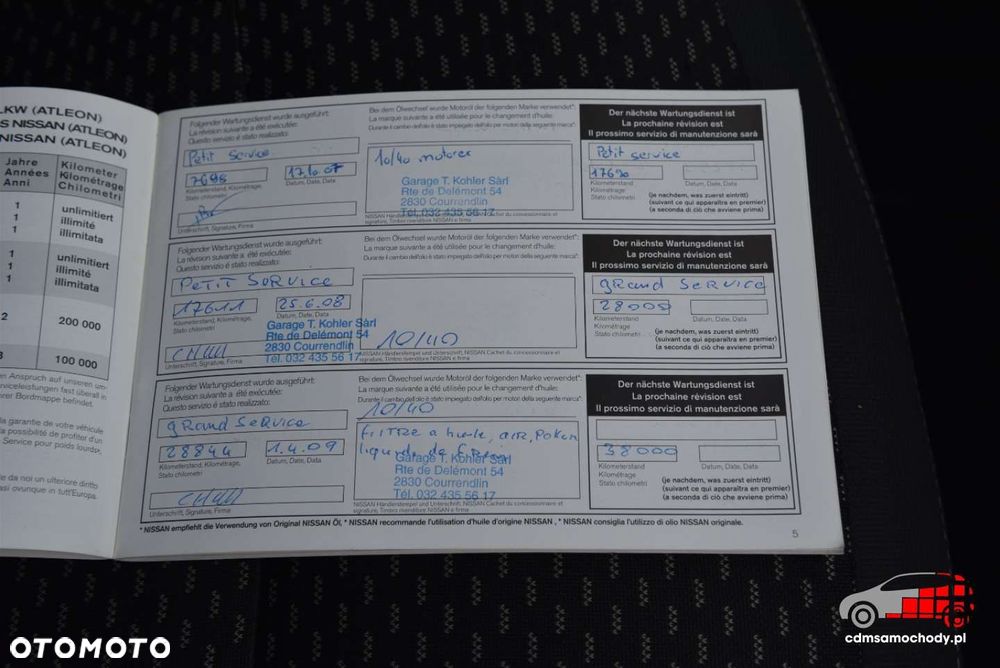 LKW (ATLEON)
S NISSAN (ATLEON)
NISSAN (ATLEON)
Jahre
Années
Anni
Kilometer
Kilométrage
Chilometri
1
1
1
unlimitiert
illimité
illimitata
1
1
1
unlimitiert
illimité
illimitata
2
200 000
3
100 000
en Anspruch auf unseren um-
niceleistungen fast überall in
hrer Bordmappe befindet.
la garantie de votre véhicule
a possibilité de profiter d'un
Service pour poids lourds»,
te da noi un ulteriore diritto
asi ovunque in tutt'Europa.
Folgender Wartungsdienst wurde ausgeführt:
La révision suivante a été exécutée:
Questo servizio è stato realizzato:
Petit service
7698
17.10.07
Kilometerstand, Kilométrage,
Stato chilometri
Datum, Date, Data
Unterschrift, Signature, Firma
Bei dem Ölwechsel wurde Motoröl der folgenden Marke verwendet*:
La marque suivante a été utilisée pour le changement d'huile:
Durante il cambio dell'olio è stato impiegato dell'olio per motori della seguente marca*:
10/40 motorex
Garage T. Kohler Sàrl
Rte de Delémont 54
2830 Courrendlin
Tél. 032 435 56 17
Der nächste Wartungsdienst ist
La prochaine révision est
Il prossimo servizio di manutenzione sarà
Petit service
17690
Kilometerstand
Kilométrage
Stato chilometri
Datum, Date, Data
(je nachdem, was zuerst eintritt)
(suivant ce qui apparaîtra en premier)
(a seconda di ciò che avviene prima)
Folgender Wartungsdienst wurde ausgeführt:
La révision suivante a été exécutée:
Questo servizio è stato realizzato:
Petit Service
17611
25.6.08
Kilometerstand, Kilométrage,
Stato chilometri
Datum, Date, Data
Unterschrift, Signature, Firma
Bei dem Ölwechsel wurde Motoröl der folgenden Marke verwendet*:
La marque suivante a été utilisée pour le changement d'huile:
Durante il cambio dell'olio è stato impiegato dell'olio per motori della seguente marca*:
Garage T. Kohler Sàrl
Rte de Delémont 54
2830 Courrendlin
Tél. 032 435 56 17
10/40
NISSAN Händlerstempel und Unterschrift, NISSAN Cachet du concessionnaire et
signature, Timbro rivenditore NISSAN e firma
Der nächste Wartungsdienst ist
La prochaine révision est
Il prossimo servizio di manutenzione sarà
grand Service
28000
Kilometerstand
Kilométrage
Stato chilometri
Datum, Date, Data
(je nachdem, was zuerst eintritt)
(suivant ce qui apparaîtra en premier)
(a seconda di ciò che avviene prima)
Folgender Wartungsdienst wurde ausgeführt:
La révision suivante a été exécutée:
Questo servizio è stato realizzato:
grand Service
28844
1.4.09
Kilometerstand, Kilométrage,
Stato chilometri
Datum, Date, Data
Unterschrift, Signature, Firma
Bei dem Ölwechsel wurde Motoröl der folgenden Marke verwendet*:
La marque suivante a été utilisée pour le changement d'huile:
Durante il cambio dell'olio è stato impiegato dell'olio per motori della seguente marca*:
10/40
Filtre a huile, air, Polen
liquide de
Garage T. Kohler Sàrl
Rte de Delémont 54
2830 Courrendlin
Tél. 032 435 56 17
NISSAN Händlerstempel und Unterschrift, NISSAN Cachet du concessionnaire et
signature, Timbro rivenditore NISSAN e firma
Der nächste Wartungsdienst ist
La prochaine révision est
Il prossimo servizio di manutenzione sarà
38000
Kilometerstand
Kilométrage
Stato chilometri
Datum, Date, Data
(je nachdem, was zuerst eintritt)
(suivant ce qui apparaîtra en premier)
(a seconda di ciò che avviene prima)
* NISSAN empfiehlt die Verwendung von Original NISSAN Öl, * NISSAN recommande l'utilisation d'huile d'origine NISSAN , * NISSAN consiglia l'utilizzo di olio NISSAN originale.
5
OTOMOTO
cdmsamochody.pl